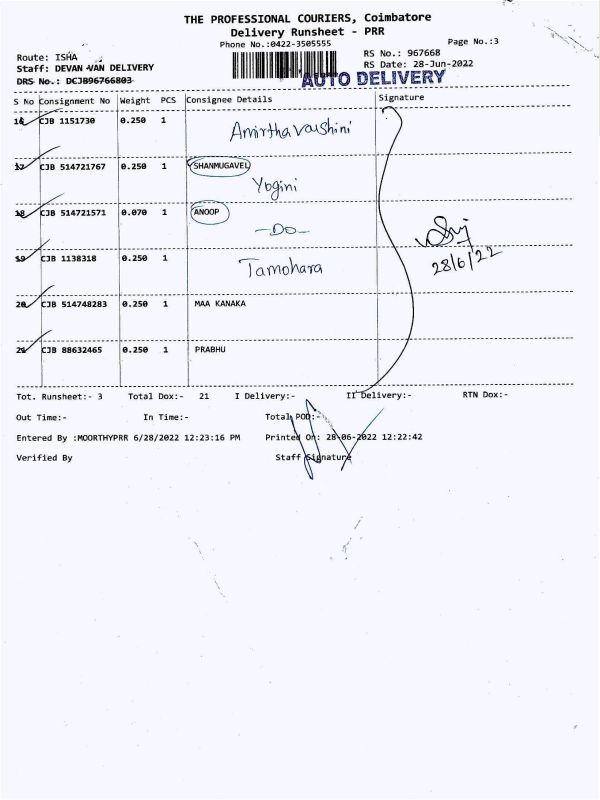 THE PROFESSIONAL COURIERS, Coimbatore
Delivery Runsheet - PRR
Phone No.:0422-3505555
Page No.:3
Route: ISHA
RS No.: 967668
Staff: DEVAN VAN DELIVERY
RS Date: 28-Jun-2022
DRS No.: DCJB96766803
AUTO DELIVERY
S No Consignment No Weight PCS Consignee Details Signature
16 CJB 1151730 0.250 1 Amirthavarshini
17 CJB 514721767 0.250 1 SHANMUGAVEL
Yogini
18 CJB 514721571 0.070 1 ANOOP
-Do-
28/6/22
19 CJB 1138318 0.250 1 Tamohara
20 CJB 514748283 0.250 1 MAA KANAKA
21 CJB 88632465 0.250 1 PRABHU
Tot. Runsheet:- 3 Total Dox:- 21 I Delivery:- II Delivery:- RTN Dox:-
Out Time:- In Time:- Total POD:-
Entered By :MOORTHYPRR 6/28/2022 12:23:16 PM Printed On: 28-06-2022 12:22:42
Verified By Staff Signature